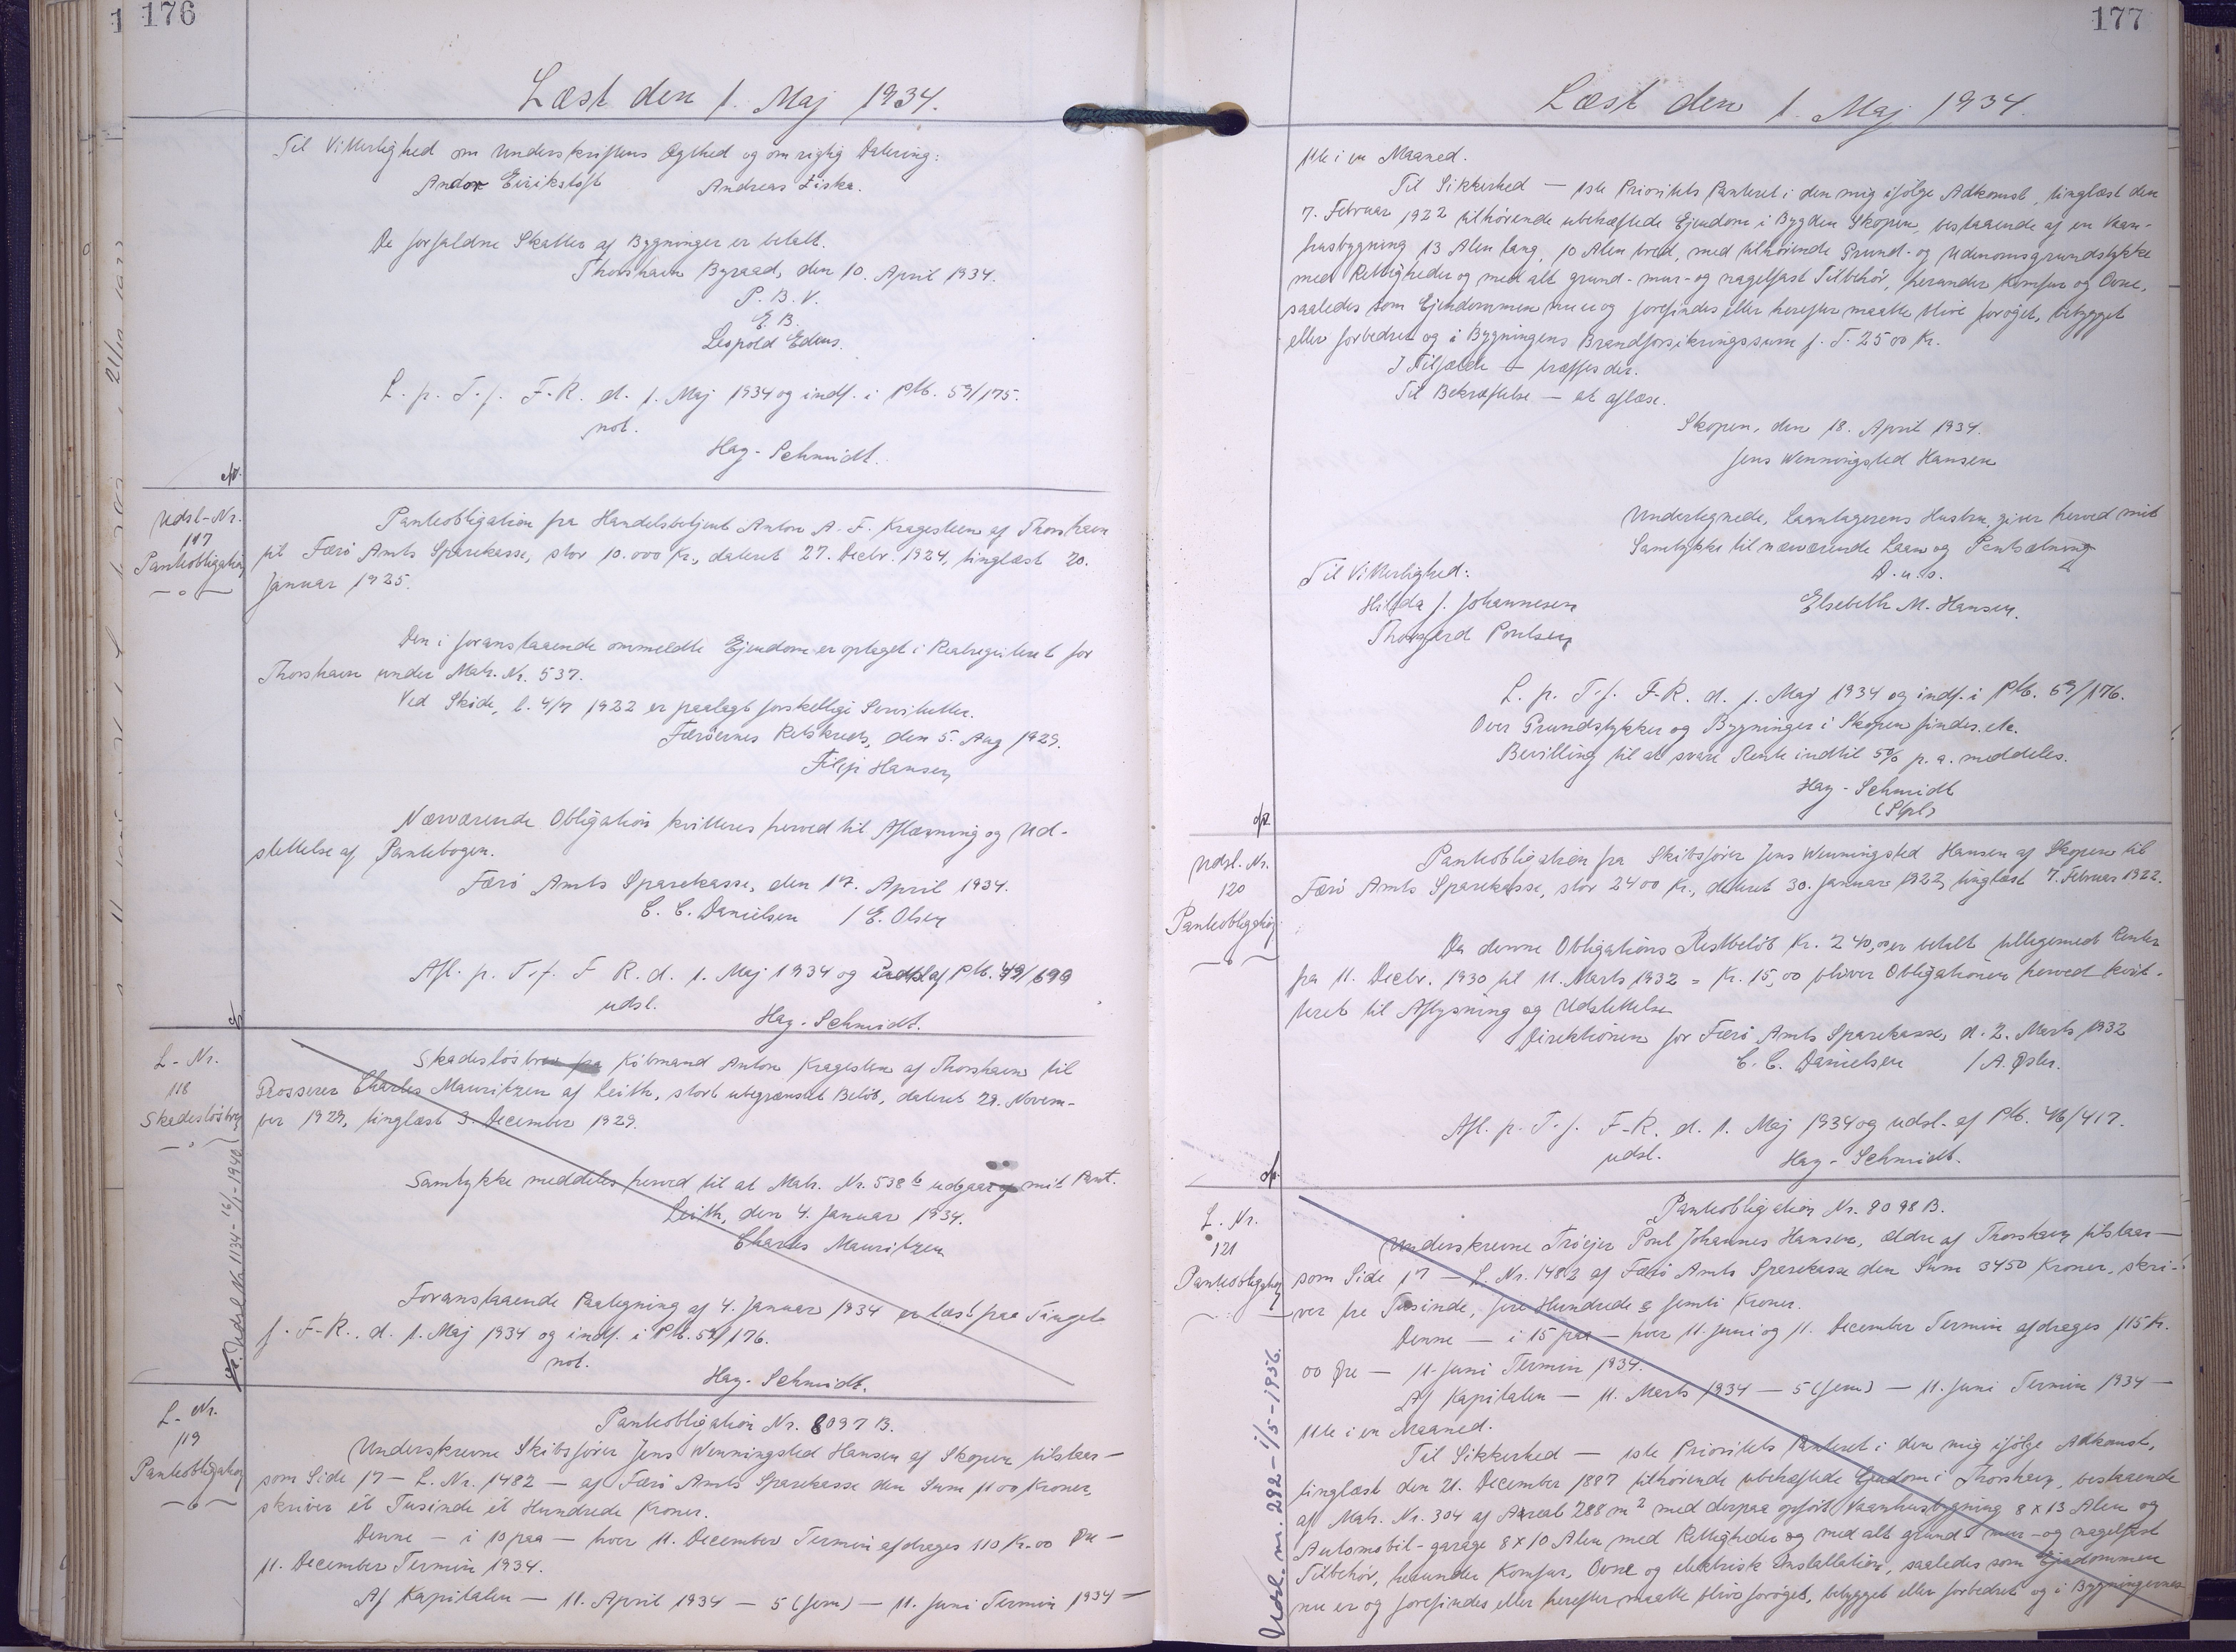 176
Læst den 1. Maj 1934.
Til Vitterlighed om Underskriftens Ægthed og om rigtig Datering:
Andor Eirikstoft Andreas Ziska.
De forfaldne Skatter af Bygninger er betalt.
Thorshavn Byraad, den 10. April 1934.
P. B. V.
E. B.
Leopold Edens.
L. p. T. f. F-R. d. 1. Maj 1934 og indf. i Ptb. 59/175.
not.
Hay-Schmidt.
Udsl-Nr.
117
Panteobligation
Panteobligation fra Handelsbetjent Anton A. F. Kragesteen af Thorshavn
til Færö Amts Sparekasse, stor 10.000 Kr., dateret 27. Decbr. 1924, tinglæst 20.
Januar 1925.
Den i foranstaaende ommeldte Ejendom er optaget i Realregisteret for
Thorshavn under Matr. Nr. 537.
Ved Sköde, l. 4/7 1922 er paalagt forskellige Servitutter.
Færöernes Retskreds, den 5. Aug 1929.
Filip Hansen
Nærværende Obligation kvitteres herved til Aflæsning og Ud-
slettelse af Pantebogen.
Færö Amts Sparekasse, den 17. April 1934.
C. C. Danielsen / E. Olsen
Afl. p. T. f. F R. d. 1. Maj 1934 og udsl. af Ptb. 49/699
udsl.
Hay-Schmidt.
L-Nr.
118
Skadeslösbrev
Udsl No 1134-16/1-1940
Skadeslösbrev fra Köbmand Anton Kragesteen af Thorshavn til
Grosserer Charles Mauritzen af Leith, stort ubegrænset Belöb, dateret 29. Novem-
ber 1929, tinglæst 3. December 1929.
Samtykke meddeles herved til at Matr. Nr. 538 b udgaar af mit Pant.
Leith, den 4. Januar 1934.
Charles Mauritzen
Foranstaaende Paategning af 4. Januar 1934 er læst paa Tinget
f. F-R., d. 1. Maj 1934 og indf. i Ptb. 59/176.
not.
Hay-Schmidt.
L-Nr.
119
Panteobligation
Panteobligation Nr. 8097 B.
Underskrevne Skibsförer Jens Wenningsted Hansen af Skopen tilstaar —
som Side 17 — L. Nr. 1482 — af Færö Amts Sparekasse den Sum 1100 Kroner,
skriver ét Tusinde ét Hundrede Kroner.
Denne — i 10 paa — hver 11. December Termin afdrages 110 Kr. 00 Öre —
11. December Termin 1934.
Af Kapitalen — 11. April 1934 — 5 (fem) — 11. Juni Termin 1934 —
177
Læst den 1. Maj 1934.
11te i en Maaned.
Til Sikkerhed — 1ste Prioritets Panteret i den mig ifölge Adkomst, tinglæst den
7. Februar 1922 tilhörende ubehæftede Ejendom i Bygden Skopen, bestaaende af en Vaan-
husbygning 13 Alen lang, 10 Alen bred, med tilhörende Grund- og Udenomsgrundstykke
med Rettigheder og med alt grund- mur- og nagelfast Tilbehör, herunder Komfur og Ovne,
saaledes som Ejendommen nu er og forefindes eller herefter maatte blive foröget, bebygget
eller forbedret og i Bygningens Brandforsikringssum f. T. 2500 Kr.
I Tilfælde — træffes der.
Til Bekræftelse — at aflæse.
Skopen, den 18. April 1934.
Jens Wenningsted Hansen
Undertegnede, Laantagerens Hustru, giver herved mit
Samtykke til nærværende Laan og Pantsætning
D. u. s.
Elsebeth M. Hansen.
Til Vitterlighed:
Hilda J. Johannesen
Thorgerd Poulsen
L. p. T. f. F-R. d. 1. Maj 1934 og indf. i Ptb. 59/176.
Over Grundstykker og Bygninger i Skopen findes etc.
Bevilling til at svare Rente indtil 5% p. a. meddeles.
Hay-Schmidt
Udsl. Nr.
120
Panteobligation
Panteobligation fra Skibsförer Jens Wenningsted Hansen af Skopen til
Færö Amts Sparekasse, stor 2400 Kr., dateret 30. Januar 1922, tinglæst 7. Februar 1922.
Da denne Obligations Restbelöb Kr. 240,00 er betalt tilligemed Renter
fra 11. Decbr. 1930 til 11. Marts 1932 = Kr. 15,00 bliver Obligationen herved kvit-
teret til Aflysning og Udslettelse
Direktionen for Færö Amts Sparekasse, d. 2. Marts 1932
C. C. Danielsen / A. Öster.
Afl. p. T. f. F-R. d. 1. Maj 1934 og udsl. af Ptb. 46/417.
udsl.
Hay-Schmidt.
L. Nr.
121
Panteobligation
Udsl. nr. 292-1/5-1956.
Panteobligation Nr. 8098 B.
Underskrevne Tröjer Poul Johannes Hansen, ældre af Thorshavn tilstaar —
som Side 17 — L. Nr. 1482 af Færö Amts Sparekasse den Sum 3450 Kroner, skri-
ver tre Tusinde, fire Hundrede & femti Kroner.
Denne — i 15 paa — hver 11. Juni og 11. December Termin afdrages 115 Kr.
00 Öre — 11. Juni Termin 1934.
Af Kapitalen — 11. Marts 1934 — 5 (fem) — 11. Juni Termin 1934 —
11te i en Maaned.
Til Sikkerhed — 1ste Prioritets Panteret i den mig ifölge Adkomst,
tinglæst den 21. December 1887 tilhörende ubehæftede Ejendom i Thorshavn, bestaaende
af Matr. Nr. 304 af Areal 288 m² med derpaa opfört Vaanhusbygning 8 x 13 Alen og
Automobil-garage 8 x 10 Alen med Rettigheder og med alt grund- mur- og nagelfast
Tilbehör, herunder Komfur, Ovne og elektrisk Installation, saaledes som Ejendommen
nu er og forefindes eller herefter maatte blive foröget, bebygget eller forbedret og i Bygningernes